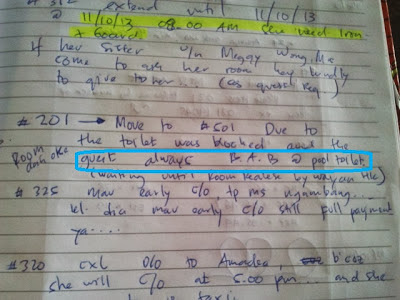 extend until 11/10/13
@ 11/10/13 08.00 AM
+ board.
if her sister o/n Meggy Wong, Ms
come to ask her room key kindly
to give to her (as guest req)
# 201 → Move to # 501 Due to
the toilet was blocked and the
Room
guest always B.A.B @ pool toilet
(waiting until room ready by
# 325 mau early c/o tp ms
kl. dia mau early c/o still full payment
ya.....
# 320 cxl D/O TO Amadea
she will c/o at 5.00 pm... and she